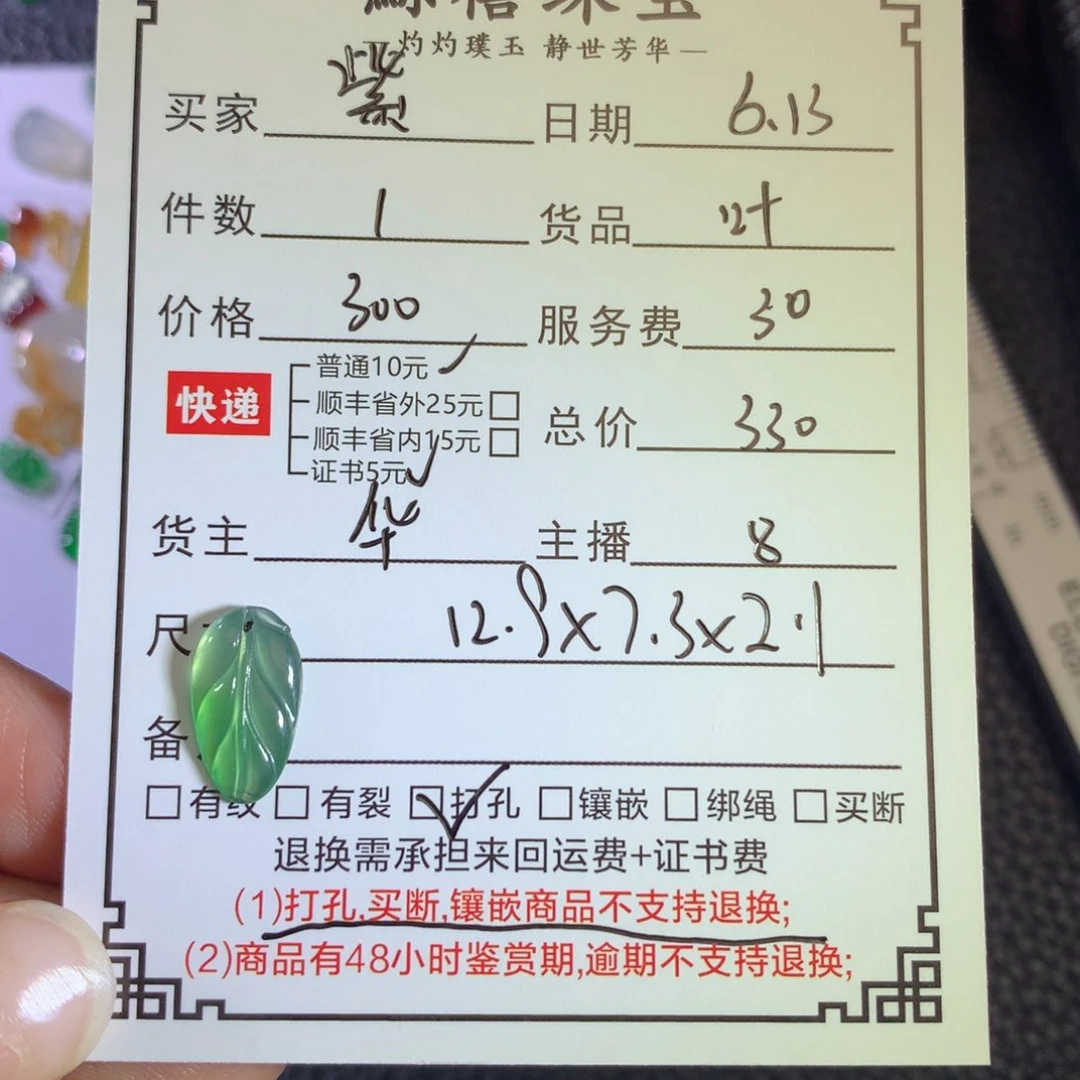 灼灼璞玉 静世芳华—
买家 紫 日期 6.13
件数 1 货品 叶
价格 300 服务费 30
快递
普通10元 ✓
顺丰省外25元□
顺丰省内15元□
证书5元 ✓
总价 330
货主 华 主播 8
尺 12.9x7.3x2.1
备
□有纹 □有裂 ☑打孔 □镶嵌 □绑绳 □买断
退换需承担来回运费+证书费
(1)打孔,买断,镶嵌商品不支持退换;
(2)商品有48小时鉴赏期,逾期不支持退换;